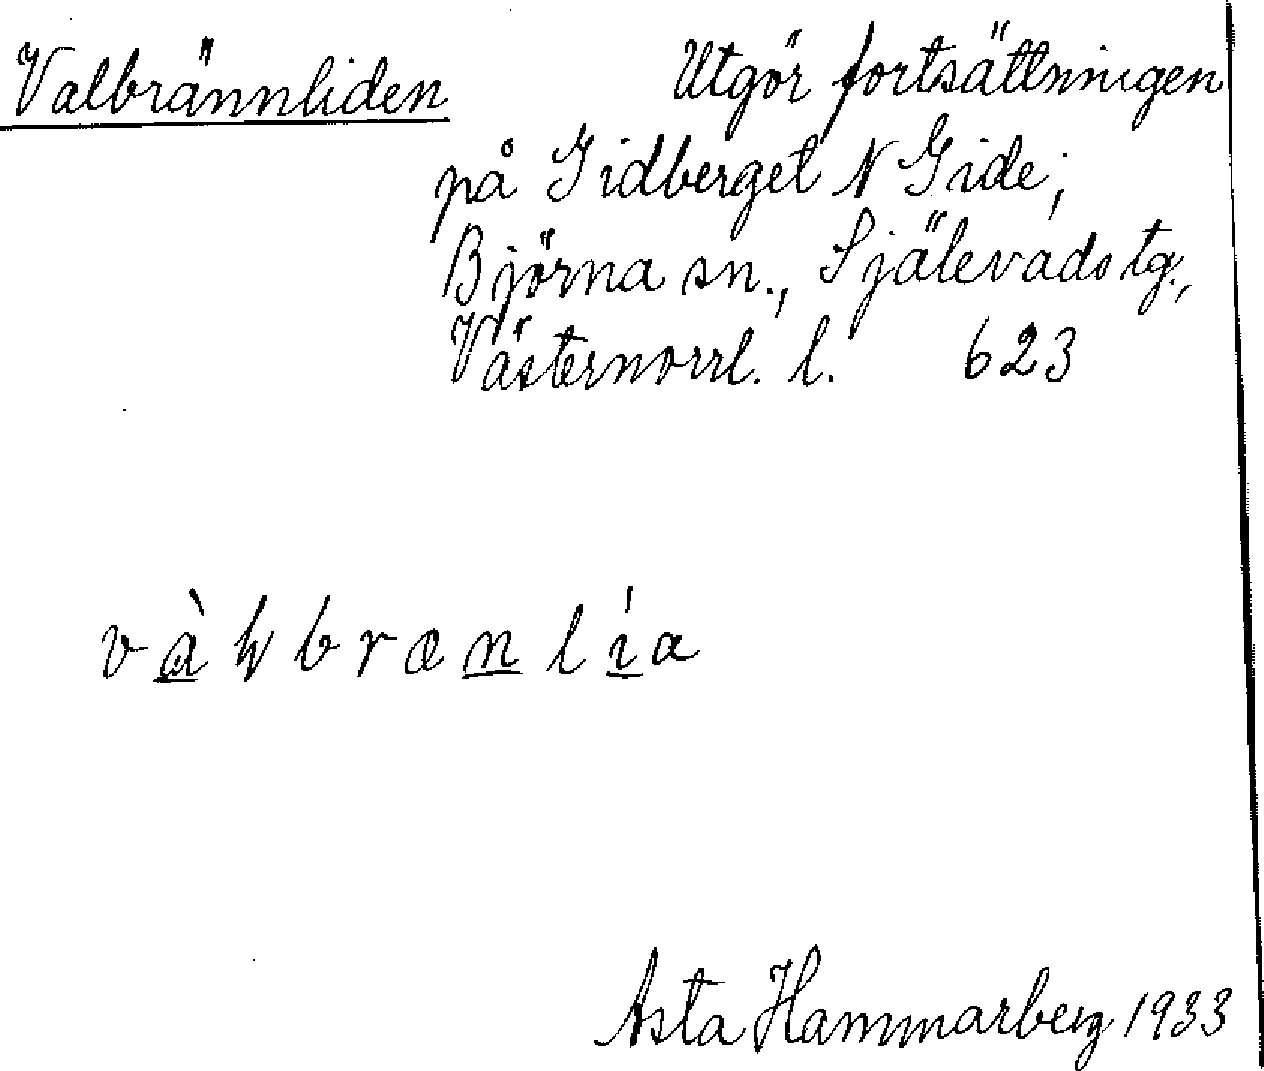 Valbrännliden Utgör fortsättningen
på Gidberget N Gide,
Björna sn., Själevads tg.,
Västernorrl. l. 623
Asta Hammarberg 1933